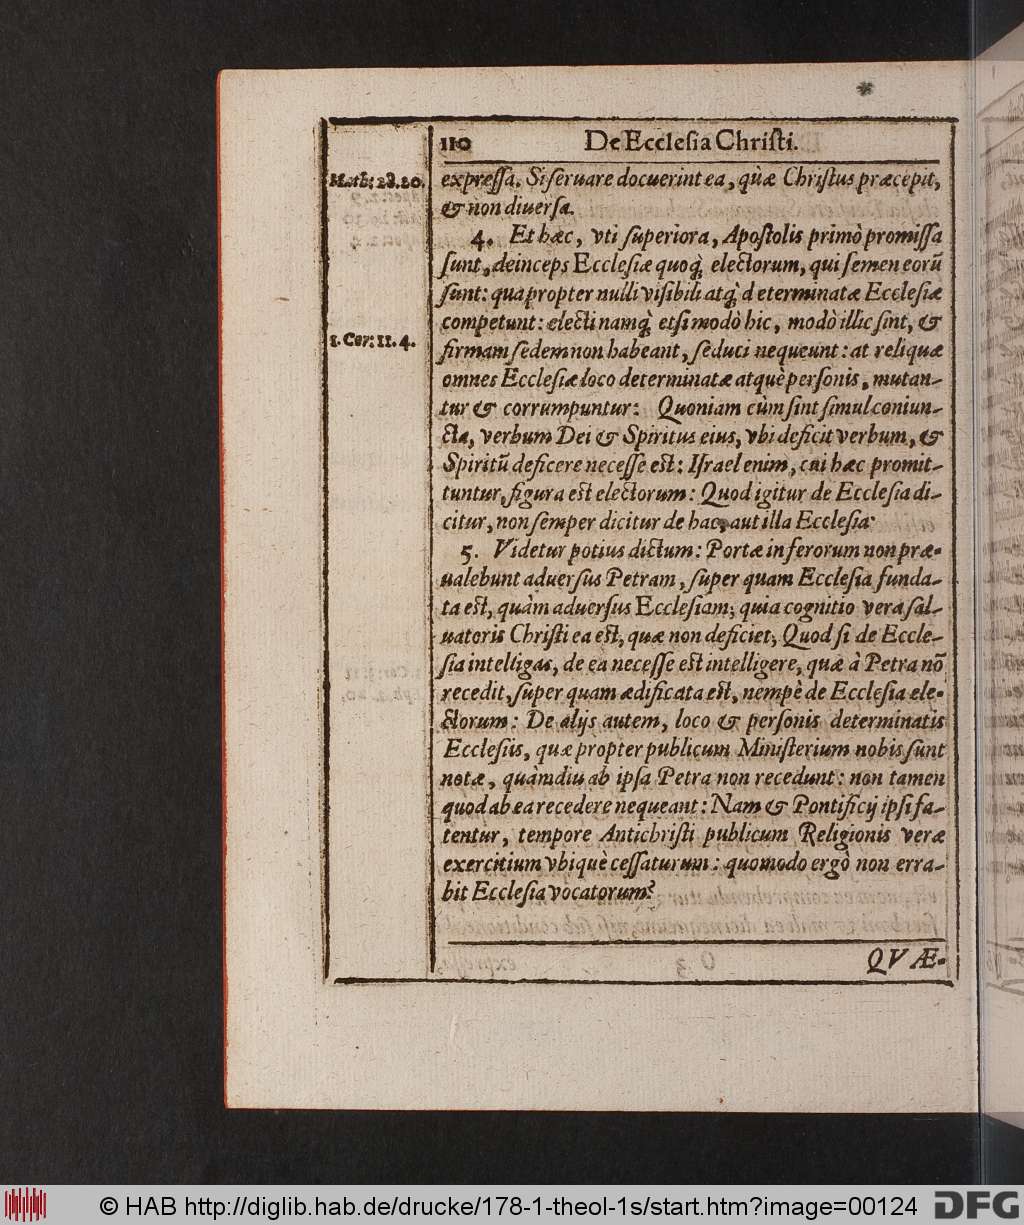 110 De Eccleſia Chriſti.
Math: 28.20.
expreſſa. Si ſeruare docuerint ea, quæ Chriſtus præcepit,
& non diuerſa.
4. Et hæc, vti ſuperiora, Apoſtolis primò promiſſa
ſunt, deinceps Eccleſiæ quoq; electorum, qui ſemen eorũ
ſunt: quapropter nulli viſibili atq; determinatæ Eccleſiæ
competunt: electi namq; etſi modò hic, modò illic ſint, &
1. Cor: 11. 4.
firmam ſedem non habeant, ſeduci nequeunt: at reliquæ
omnes Eccleſiæ loco determinatæ atquè perſonis, mutan-
tur & corrumpuntur: Quoniam cùm ſint ſimul coniun-
cta, verbum Dei & Spiritus eius, vbi deficit verbum, &
Spiritũ deficere neceſſe eſt: Iſrael enim, cui hæc promit-
tuntur, figura eſt electorum: Quod igitur de Eccleſia di-
citur, non ſemper dicitur de hac, aut illa Eccleſia.
5. Videtur potius dictum: Portæ inferorum non præ-
ualebunt aduerſus Petram, ſuper quam Eccleſia funda-
ta eſt, quàm aduerſus Eccleſiam; quia cognitio vera ſal-
uatoris Chriſti ea eſt, quæ non deficiet; Quod ſi de Eccle-
ſia intelligas, de ea neceſſe eſt intelligere, quæ à Petra nõ
recedit, ſuper quam ædificata eſt, nempè de Eccleſia ele-
ctorum: De alijs autem, loco & perſonis determinatis
Eccleſiis, quæ propter publicum Miniſterium nobis ſunt
notæ, quàmdiu ab ipſa Petra non recedunt: non tamen
quod ab ea recedere nequeant: Nam & Pontificij ipſi fa-
tentur, tempore Antichriſti publicum Religionis veræ
exercitium vbiquè ceſſaturum: quomodo ergò non erra-
bit Eccleſia vocatorum?
QVÆ-
© HAB http://diglib.hab.de/drucke/178-1-theol-1s/start.htm?image=00124
DFG